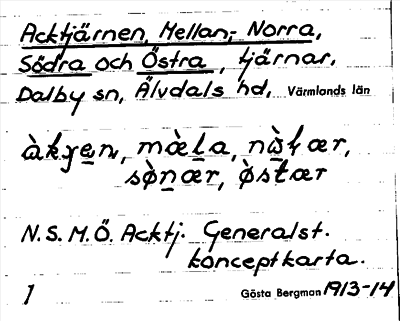 Acktjärnen, Mellan-, Norra,
Södra och Östra, tjärnar,
Dalby sn, Älvdals hd, Värmlands län
N.S.M.Ö. Acktj. Generalst.
konceptkarta.
1 Gösta Bergman 1913-14